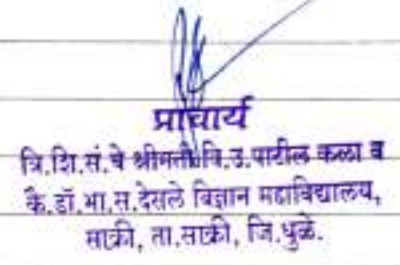 प्राचार्य
त्रि.शि.सं.चे श्रीमती.वि.उ.पाटील कला व
कै.डॉ.भा.स.देसले विज्ञान महाविद्यालय,
साक्री, ता.साक्री, जि.धुळे.